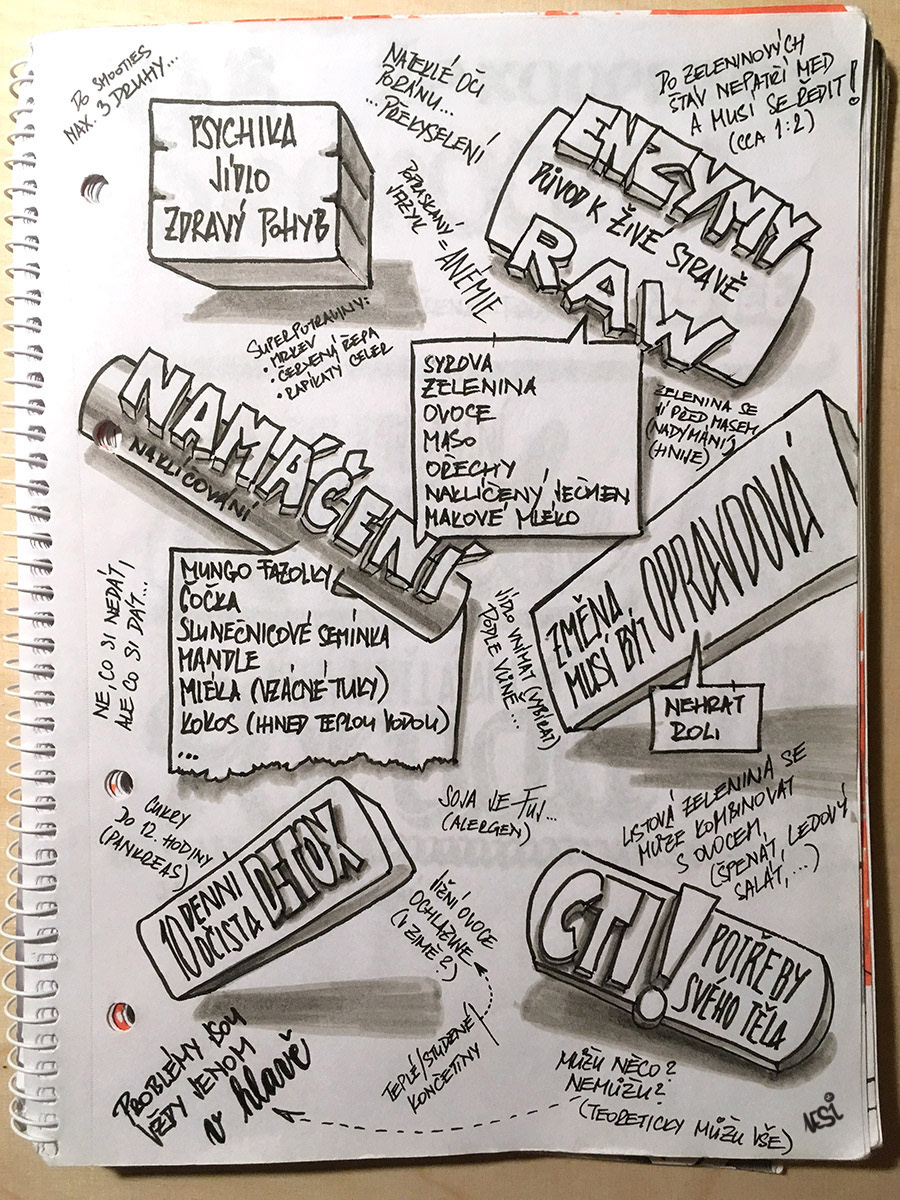 DO SMOOTIES
MAX. 3 DRUHY...
NATEKLÉ OČI
PO RÁNU...
...PŘEKYSELENÍ
DO ZELENINOVÝCH
ŠTAV NEPATŘÍ MED
A MUSÍ SE ŘEDIT!
(CCA 1:2)
PSYCHIKA
JÍDLO
ZDRAVÝ POHYB
POPRASKANÝ
JAZYK = ANÉMIE
ENZYMY
DŮVOD K ŽIVÉ STRAVĚ
RAW
SUPERPOTRAVINY:
• MRKEV
• ČERVENÁ ŘEPA
• ŘAPÍKATÝ CELER
SYROVÁ
ZELENINA
OVOCE
MASO
OŘECHY
NAKLÍČENÝ JEČMEN
MAKOVÉ MLÉKO
ZELENINA SE
JÍ PŘED MASEM
(NADÝMÁNÍ)
(HNIJE)
NAMÁČENÍ
NAKLÍČOVÁNÍ
MUNGO FAZOLKY
ČOČKA
SLUNEČNICOVÉ SEMÍNKA
MANDLE
MLÉKA (VZÁCNÉ TUKY)
KOKOS (IHNED TEPLOU VODOU)
...
NE, CO SI NEDÁT,
ALE CO SI DÁT...
JÍDLO VNÍMAT (VYBÍRAT)
PODLE VŮNĚ...
ZMĚNA
MUSÍ BÝT OPRAVDOVÁ
NEHRÁT
ROLI
CUKRY
DO 12. HODINY
(PANKREAS)
SOJA JE FUJ...
(ALERGEN)
LISTOVÁ ZELENINA SE
MŮŽE KOMBINOVAT
S OVOCEM,
(ŠPENÁT, LEDOVÝ
SALÁT,...)
10 DENNÍ
OČISTA DETOX
JIŽNÍ OVOCE
OCHLAZUJE
(V ZIMĚ?)
CTI!
POTŘEBY
SVÉHO TĚLA
TEPLÉ/STUDENÉ
KONČETINY
PROBLÉMY JSOU
VŽDY JENOM
v hlavě
MŮŽU NĚCO?
NEMŮŽU?
(TEORETICKY MŮŽU VŠE)
NESI